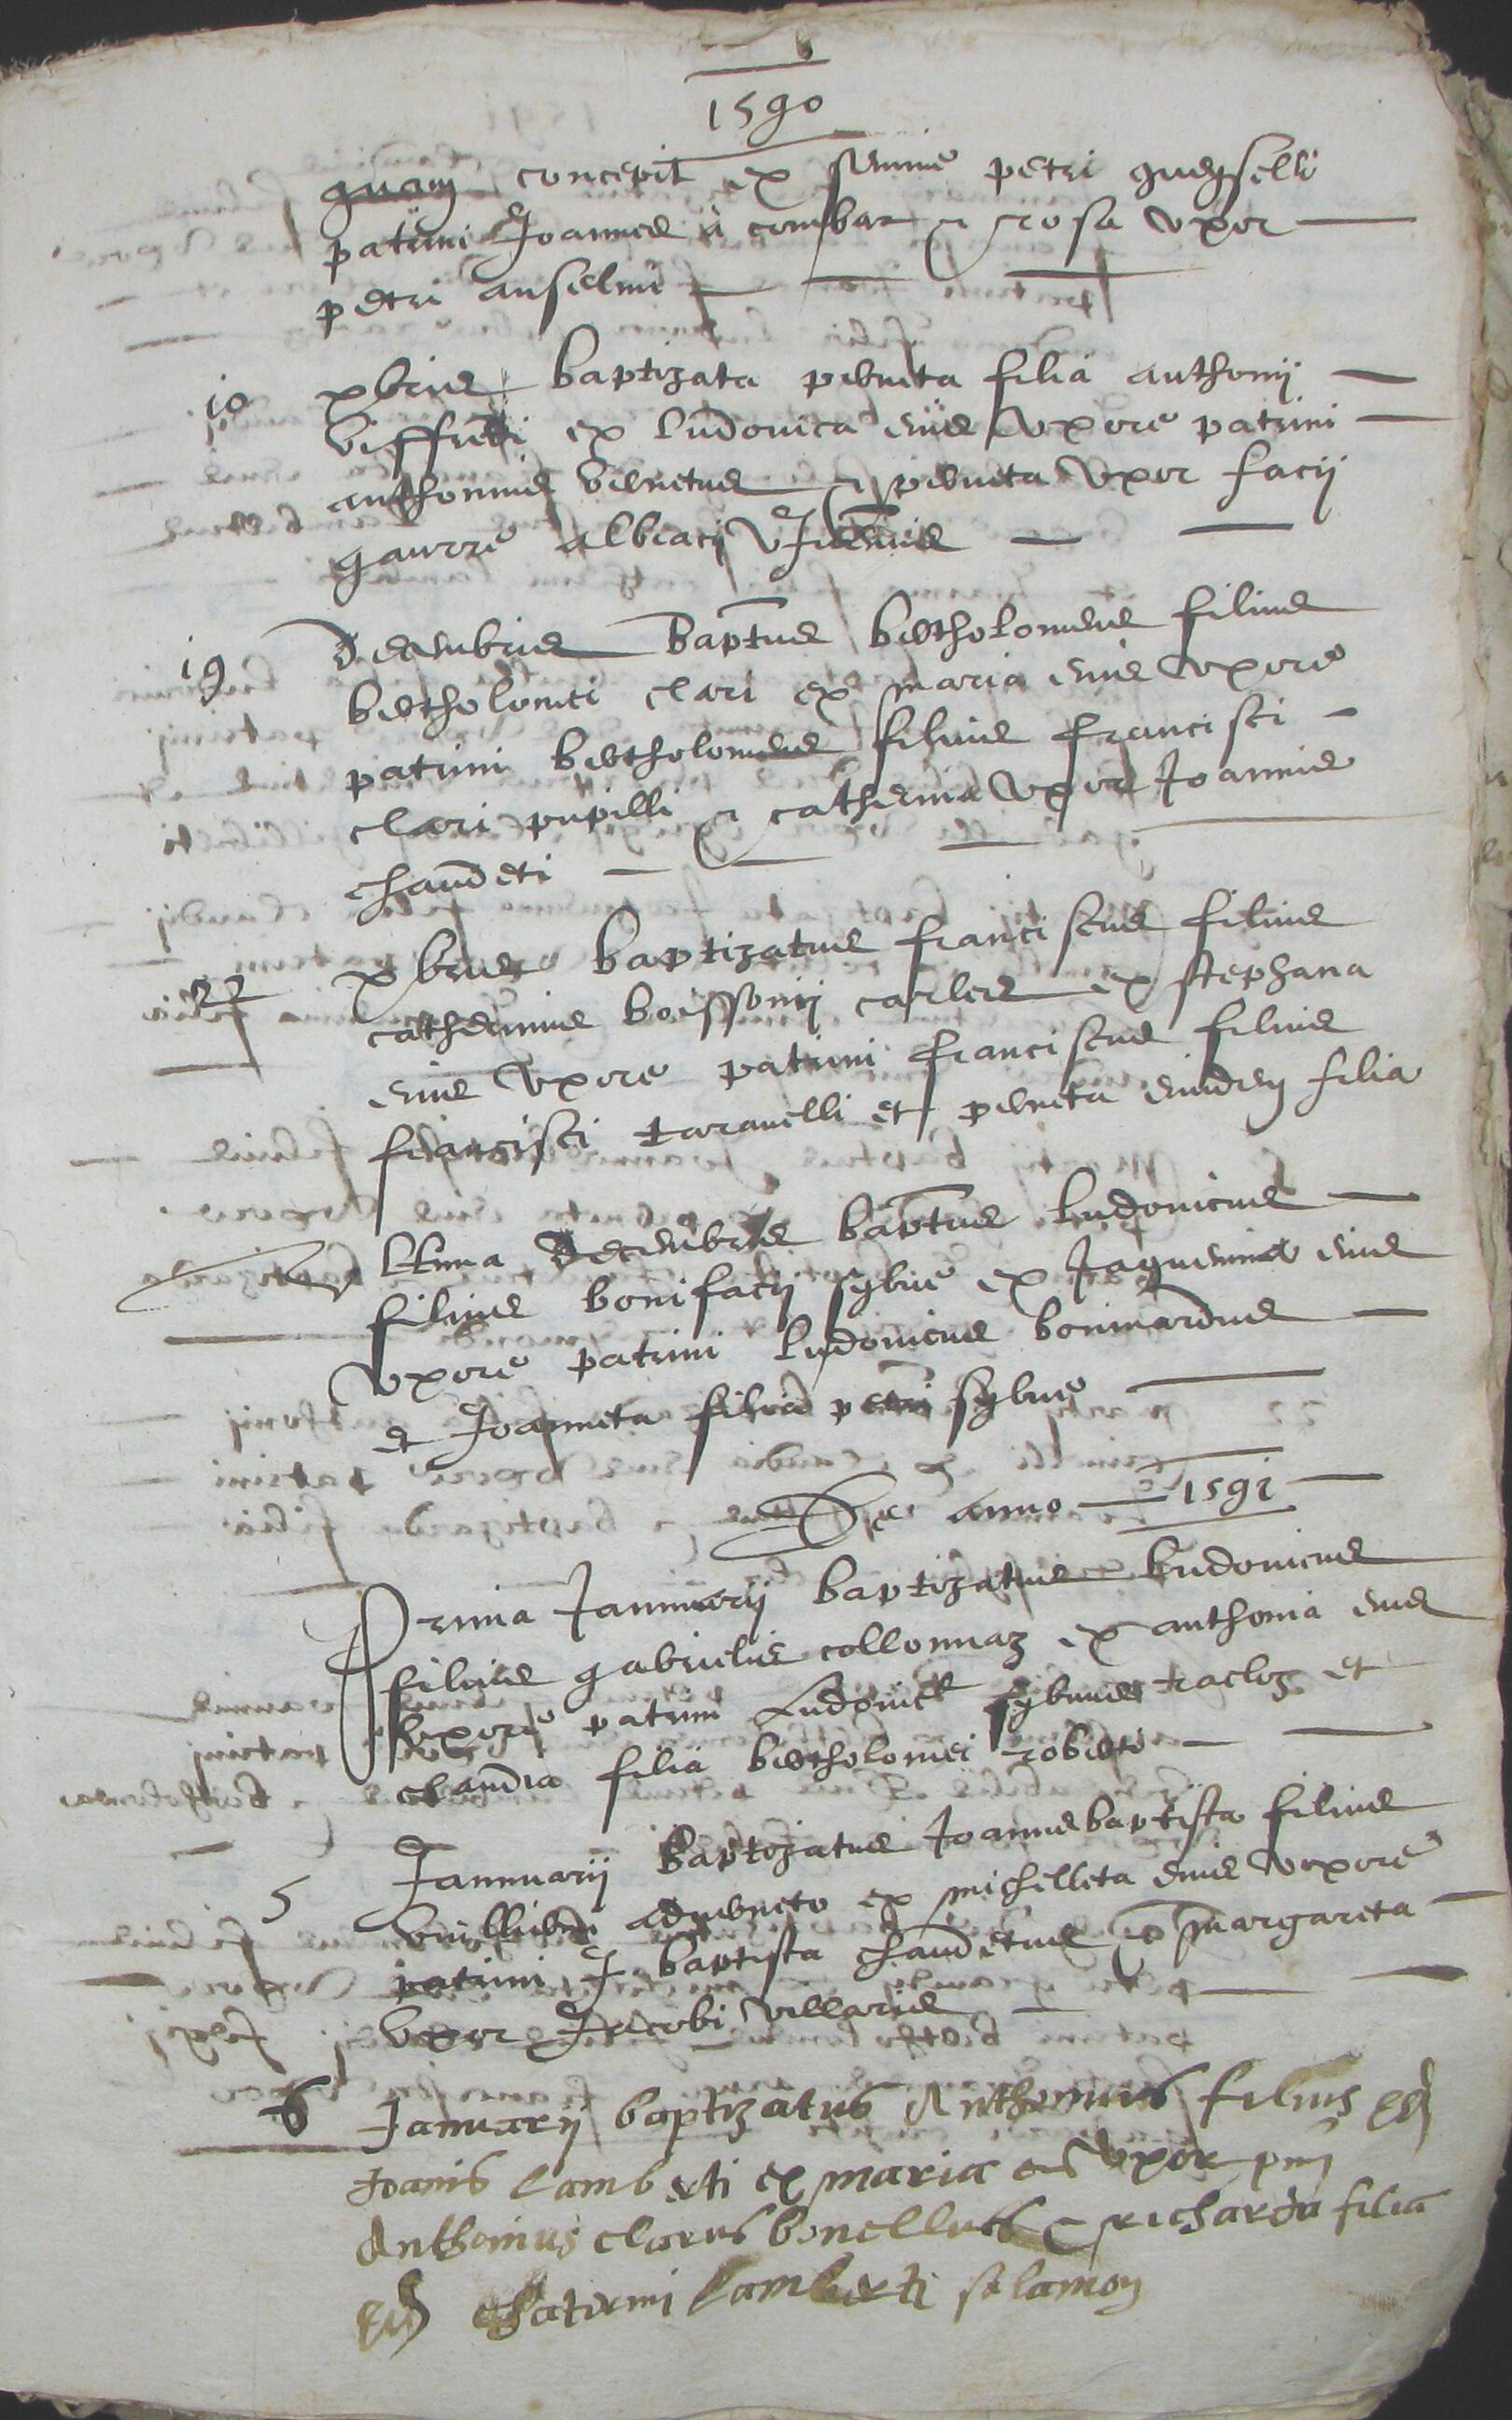 1590
quam concepit ex semine petri guesselli
patrini Joannes a combar & rosa uxor
petri anselmi
10 xbris baptizata peirneta filia anthonij
ex ludovica eius uxore patrini
anthonius & peirneta uxor facij
gaurre
19 Decembris baptus bertholomeus filius
bertholomei clari ex maria eius uxore
patrini bertholomeus filius francisci
clari pupilli & catherina uxor Joannis
chaudeti
xbris baptizatus franciscus filius
catherinus boissonij carles ex stephana
eius uxore patrini franciscus filius
francisci taravelli et peirneta eiusdem filia
ltima Decembris baptus ludovicus
filius bonifacij sylue ex Jaquemina eius
uxore patrini ludovicus bonnardus
et Joanneta filia petri sylue
De anno 1591
Prima Jannuarij baptizatus Ludovicus
filius gabrielis collonnaz ex anthonia eius
uxore patrini Ludovic sybnes et
claudia filia bertholomei roberti
5 Jannuarij baptizatus Joannesbaptista filius
ex michelleta eius uxore
patrini J baptista chaudetus & margareta
uxor Jacobi villaris
6 Januarij baptizatus Anthonius filius
Joanis lamberti ex maria eius uxor
Anthonius clarus bonellus & richarda filia
saturni lamberti salamon